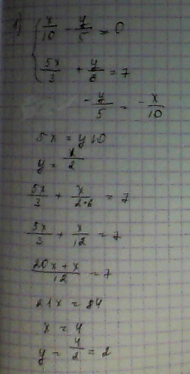 б) { x/10 - y/5 = 0
5x/3 + y/6 = 7
- y/5 = - x/10
5x = y10
y = x/2
5x/3 + x/2·6 = 7
5x/3 + x/12 = 7
20x + x/12 = 7
21x = 84
x = 4
y = 4/2 = 2